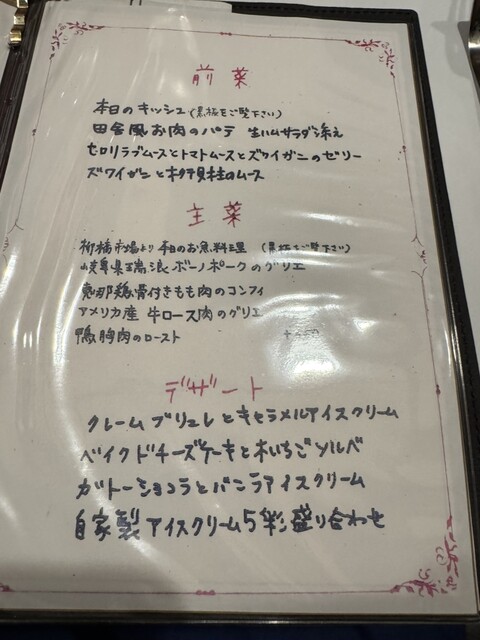 前菜
本日のキッシュ(黒板をご覧下さい)
田舎風お肉のパテ 生ハムサラダ添え
セロリラブムースとトマトムースとズワイガニのゼリー
ズワイガニと帆立貝柱のムース
主菜
柳橋市場より本日のお魚料理 (黒板をご覧下さい)
岐阜県瑞浪ボーノポークのグリエ
恵那鶏骨付きもも肉のコンフィ
アメリカ産 牛ロース肉のグリエ
鴨胸肉のロースト
デザート
クレームブリュレとキャラメルアイスクリーム
ベイクドチーズケーキと木いちごソルベ
ガトーショコラとバニラアイスクリーム
自家製アイスクリーム5種盛り合わせ